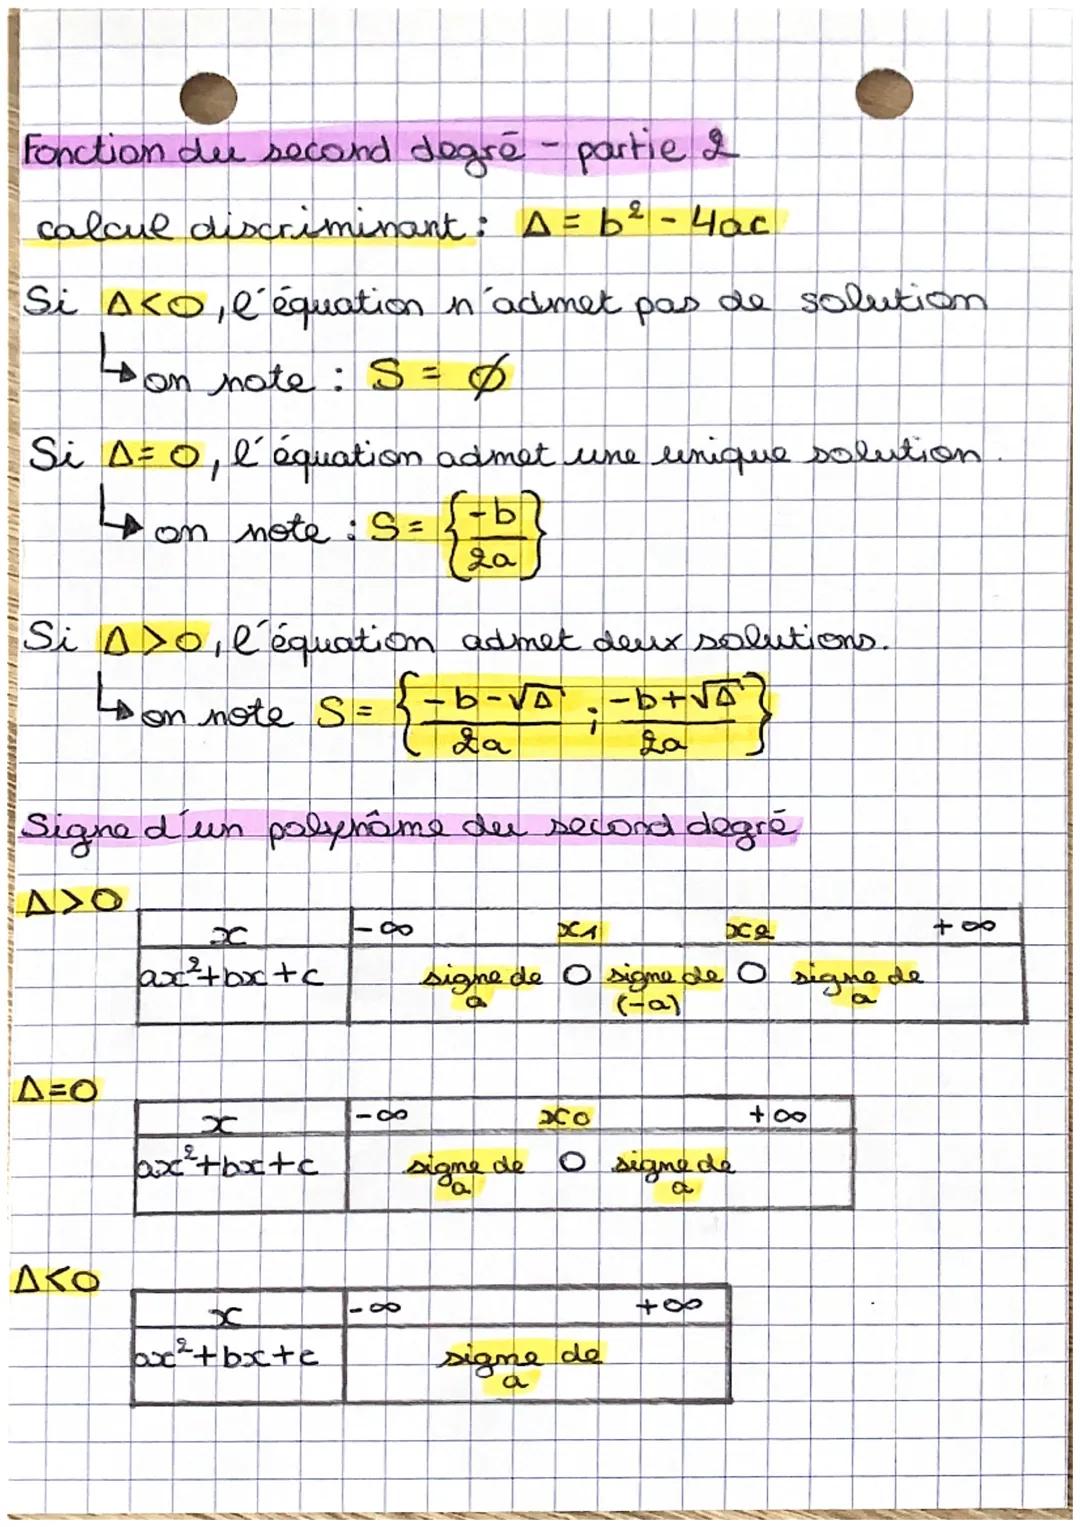 Fonction du second degré - partie 2
calcul discriminant : Δ = b² - 4ac
Si Δ<0, l'équation n'admet pas de solution
↳ on note : S = ∅
Si Δ=0, l'équation admet une unique solution.
↳ on note : S = {-b/2a}
Si Δ>0, l'équation admet deux solutions.
↳ on note S = {-b-√Δ/2a ; -b+√Δ/2a}
Signe d'un polynôme du second degré
Δ>0
x -∞ x1 x2 +∞
ax²+bx+c signe de a 0 signe de (-a) 0 signe de a
Δ=0
x -∞ x0 +∞
ax²+bx+c signe de a 0 signe de a
Δ<0
x -∞ +∞
ax²+bx+c signe de a